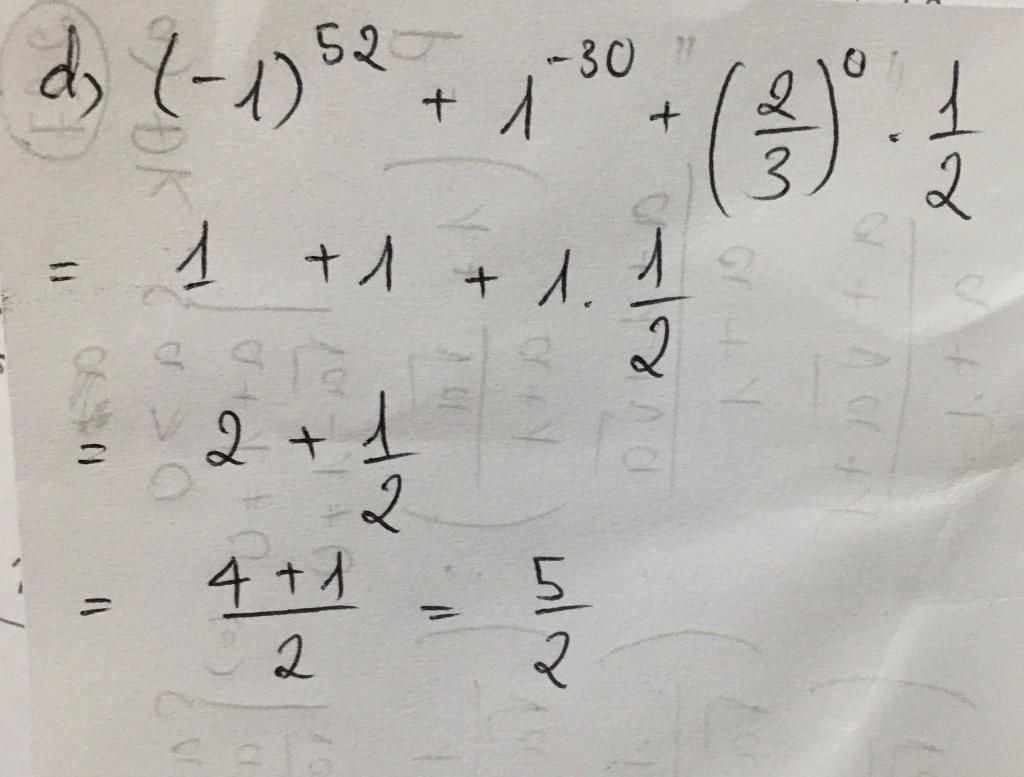 d) (-1)^52 + 1^-30 + (2/3)^0 · 1/2
= 1 + 1 + 1 · 1/2
= 2 + 1/2
= (4+1)/2 = 5/2